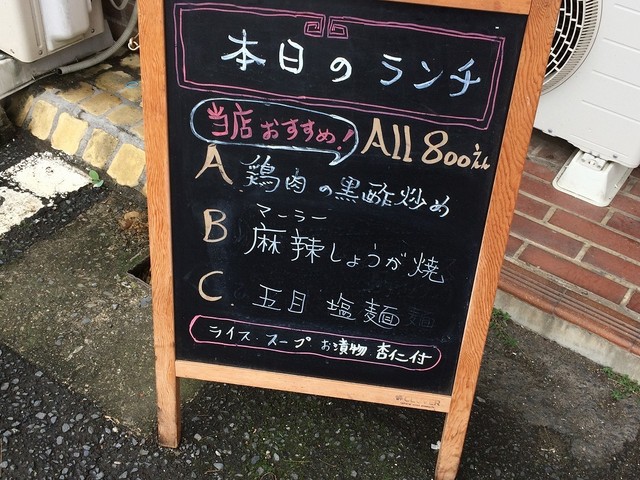 本日のランチ
当店おすすめ!
All 800えん
A 鶏肉の黒酢炒め
マーラー
B 麻辣しょうが焼
C. 五目塩麺
ライス・スープ お漬物 杏仁付